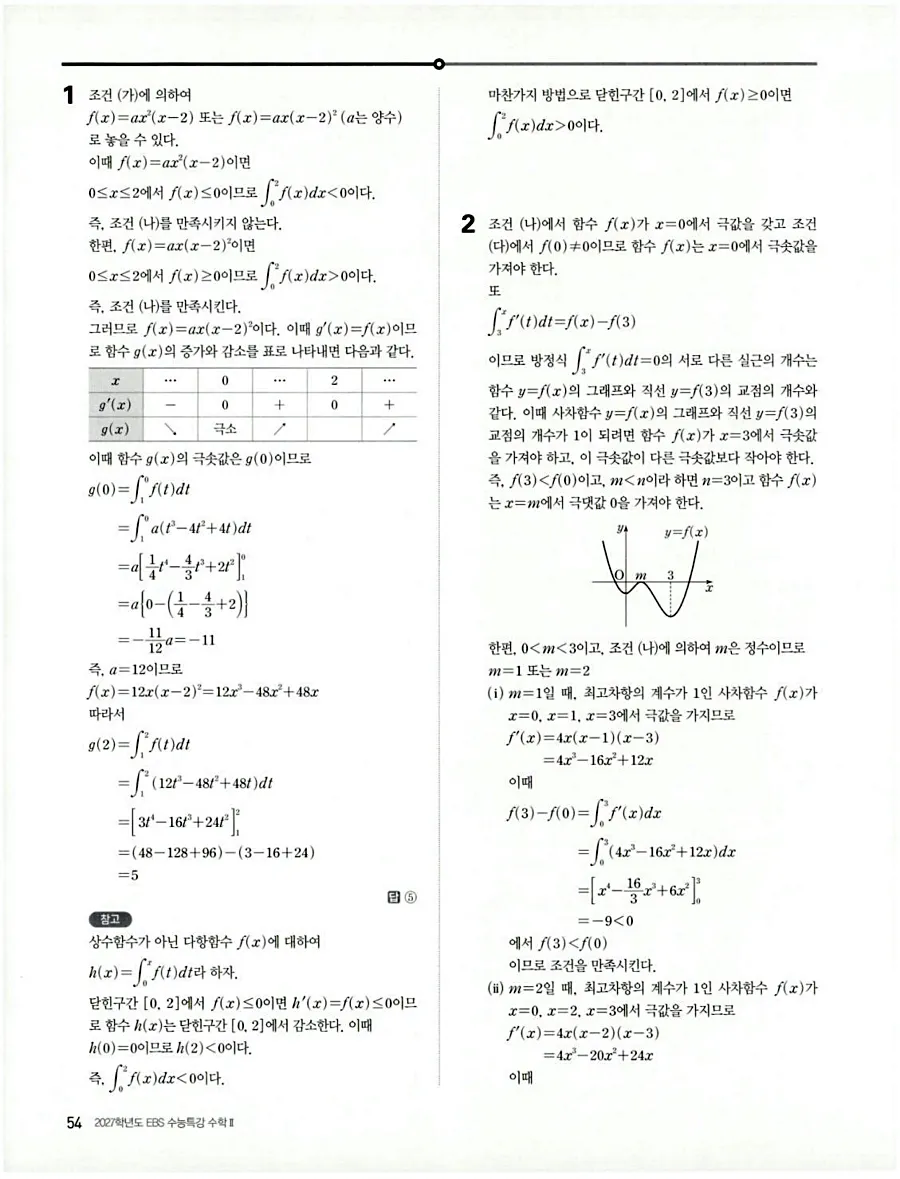 1 조건 (가)에 의하여
f(x)=ax²(x-2) 또는 f(x)=ax(x-2)² (a는 양수)
로 놓을 수 있다.
이때 f(x)=ax²(x-2)이면
0≤x≤2에서 f(x)≤0이므로 ∫₀² f(x)dx<0이다.
즉, 조건 (나)를 만족시키지 않는다.
한편, f(x)=ax(x-2)²이면
0≤x≤2에서 f(x)≥0이므로 ∫₀² f(x)dx>0이다.
즉, 조건 (나)를 만족시킨다.
그러므로 f(x)=ax(x-2)²이다. 이때 g′(x)=f(x)이므
로 함수 g(x)의 증가와 감소를 표로 나타내면 다음과 같다.
x … 0 … 2 …
g′(x) - 0 + 0 +
g(x) ↘ 극소 ↗ ↗
이때 함수 g(x)의 극솟값은 g(0)이므로
g(0)=∫₁⁰ f(t)dt
=∫₁⁰ a(t³-4t²+4t)dt
=a[1/4 t⁴-4/3 t³+2t²]₁⁰
=a{0-(1/4-4/3+2)}
=-11/12 a=-11
즉, a=12이므로
f(x)=12x(x-2)²=12x³-48x²+48x
따라서
g(2)=∫₁² f(t)dt
=∫₁² (12t³-48t²+48t)dt
=[3t⁴-16t³+24t²]₁²
=(48-128+96)-(3-16+24)
=5
답 ⑤
참고
상수함수가 아닌 다항함수 f(x)에 대하여
h(x)=∫₀ˣ f(t)dt라 하자.
닫힌구간 [0, 2]에서 f(x)≤0이면 h′(x)=f(x)≤0이므
로 함수 h(x)는 닫힌구간 [0, 2]에서 감소한다. 이때
h(0)=0이므로 h(2)<0이다.
즉, ∫₀² f(x)dx<0이다.
마찬가지 방법으로 닫힌구간 [0, 2]에서 f(x)≥0이면
∫₀² f(x)dx>0이다.
2 조건 (나)에서 함수 f(x)가 x=0에서 극값을 갖고 조건
(다)에서 f(0)≠0이므로 함수 f(x)는 x=0에서 극솟값을
가져야 한다.
또
∫₃ˣ f′(t)dt=f(x)-f(3)
이므로 방정식 ∫₃ˣ f′(t)dt=0의 서로 다른 실근의 개수는
함수 y=f(x)의 그래프와 직선 y=f(3)의 교점의 개수와
같다. 이때 사차함수 y=f(x)의 그래프와 직선 y=f(3)의
교점의 개수가 1이 되려면 함수 f(x)가 x=3에서 극솟값
을 가져야 하고, 이 극솟값이 다른 극솟값보다 작아야 한다.
즉, f(3)<f(0)이고, m<n이라 하면 n=3이고 함수 f(x)
는 x=m에서 극댓값 0을 가져야 한다.
y y=f(x)
O m 3 x
한편, 0<m<3이고, 조건 (나)에 의하여 m은 정수이므로
m=1 또는 m=2
(i) m=1일 때, 최고차항의 계수가 1인 사차함수 f(x)가
x=0, x=1, x=3에서 극값을 가지므로
f′(x)=4x(x-1)(x-3)
=4x³-16x²+12x
이때
f(3)-f(0)=∫₀³ f′(x)dx
=∫₀³ (4x³-16x²+12x)dx
=[x⁴-16/3 x³+6x²]₀³
=-9<0
에서 f(3)<f(0)
이므로 조건을 만족시킨다.
(ii) m=2일 때, 최고차항의 계수가 1인 사차함수 f(x)가
x=0, x=2, x=3에서 극값을 가지므로
f′(x)=4x(x-2)(x-3)
=4x³-20x²+24x
이때
54 2027학년도 EBS 수능특강 수학Ⅱ